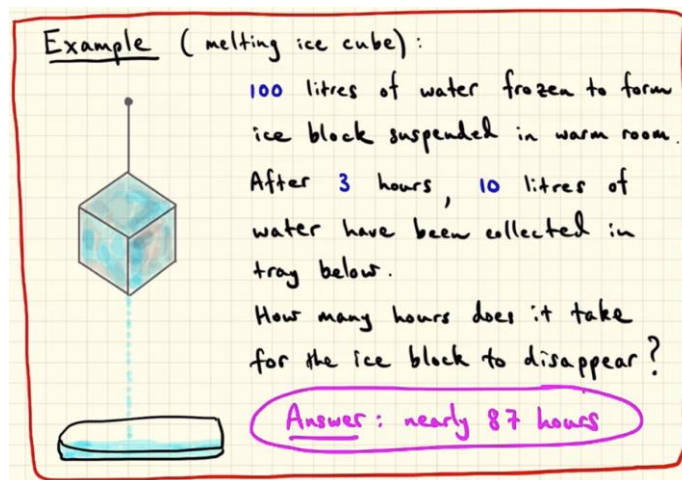 Example (melting ice cube):
100 litres of water frozen to form
ice block suspended in warm room.
After 3 hours, 10 litres of
water have been collected in
tray below.
How many hours does it take
for the ice block to disappear?
Answer: nearly 87 hours